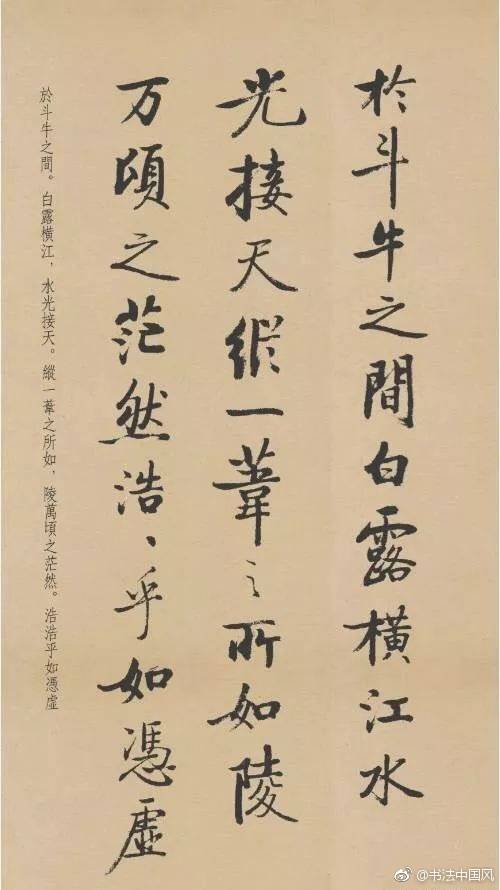 於斗牛之間白露橫江水
光接天縱一葦之所如陵
万頃之茫然浩〻乎如憑虛
於斗牛之間。白露橫江，水光接天。縱一葦之所如，陵萬頃之茫然。浩浩乎如憑虛
@书法中国风